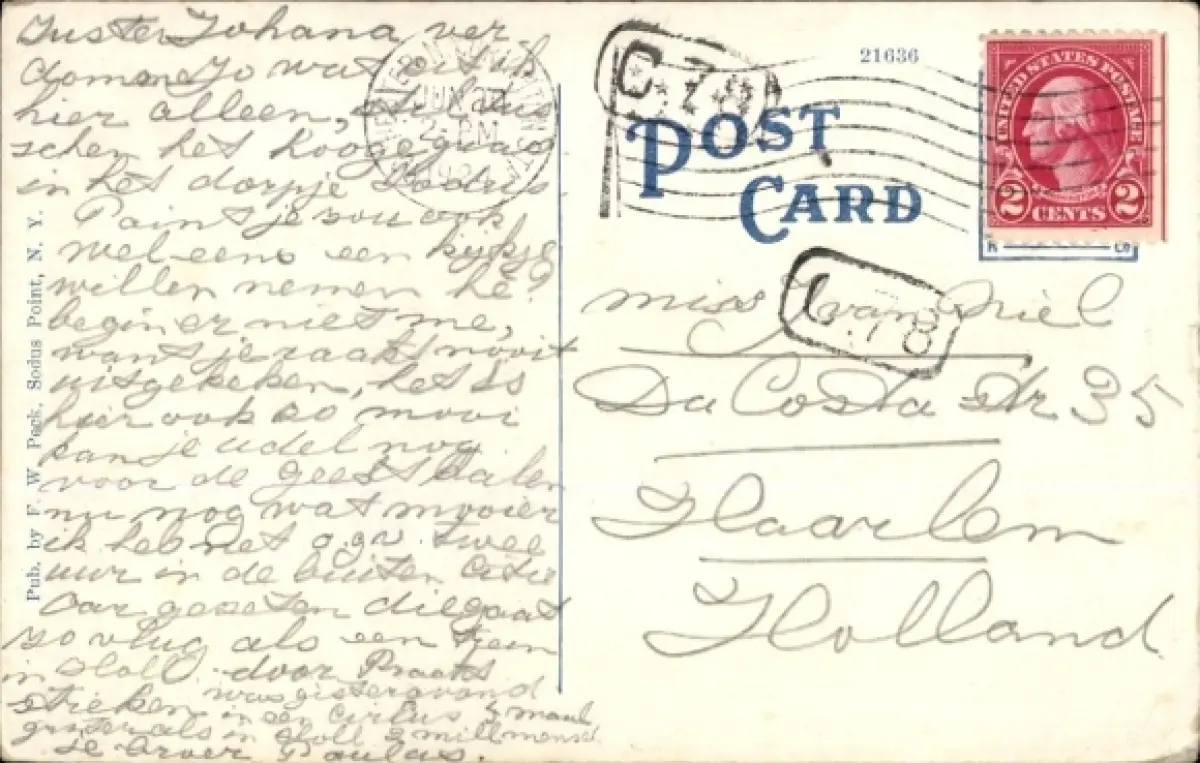 Zuster Johana ver
domen Jo wat
hier alleen,
schen het hooge gras
in het dorpje Sodus.
Paint je zou ook
wel eens een kijkje
willen nemen hè!
begin er niet me,
want je raakt nooit
uitgekeken, het is
hier ook zo mooi
kan je
voor de geest halen
nu nog wat mooier
ik heb net twee
uur in de buiten
car gezeten die gaat
zo vlug als een trein
in Holl. door
was gisteravond
in een Circus 4 maal
groter als in Holl
je broer Paulus.
Pub. by F. W. Peck, Sodus Point, N. Y.
JUN
2 - PM
C.78
21636
POST
CARD
UNITED STATES POSTAGE
2 CENTS 2
C.78
miss J van Niel
Da Costa str 35
Haarlem
Holland